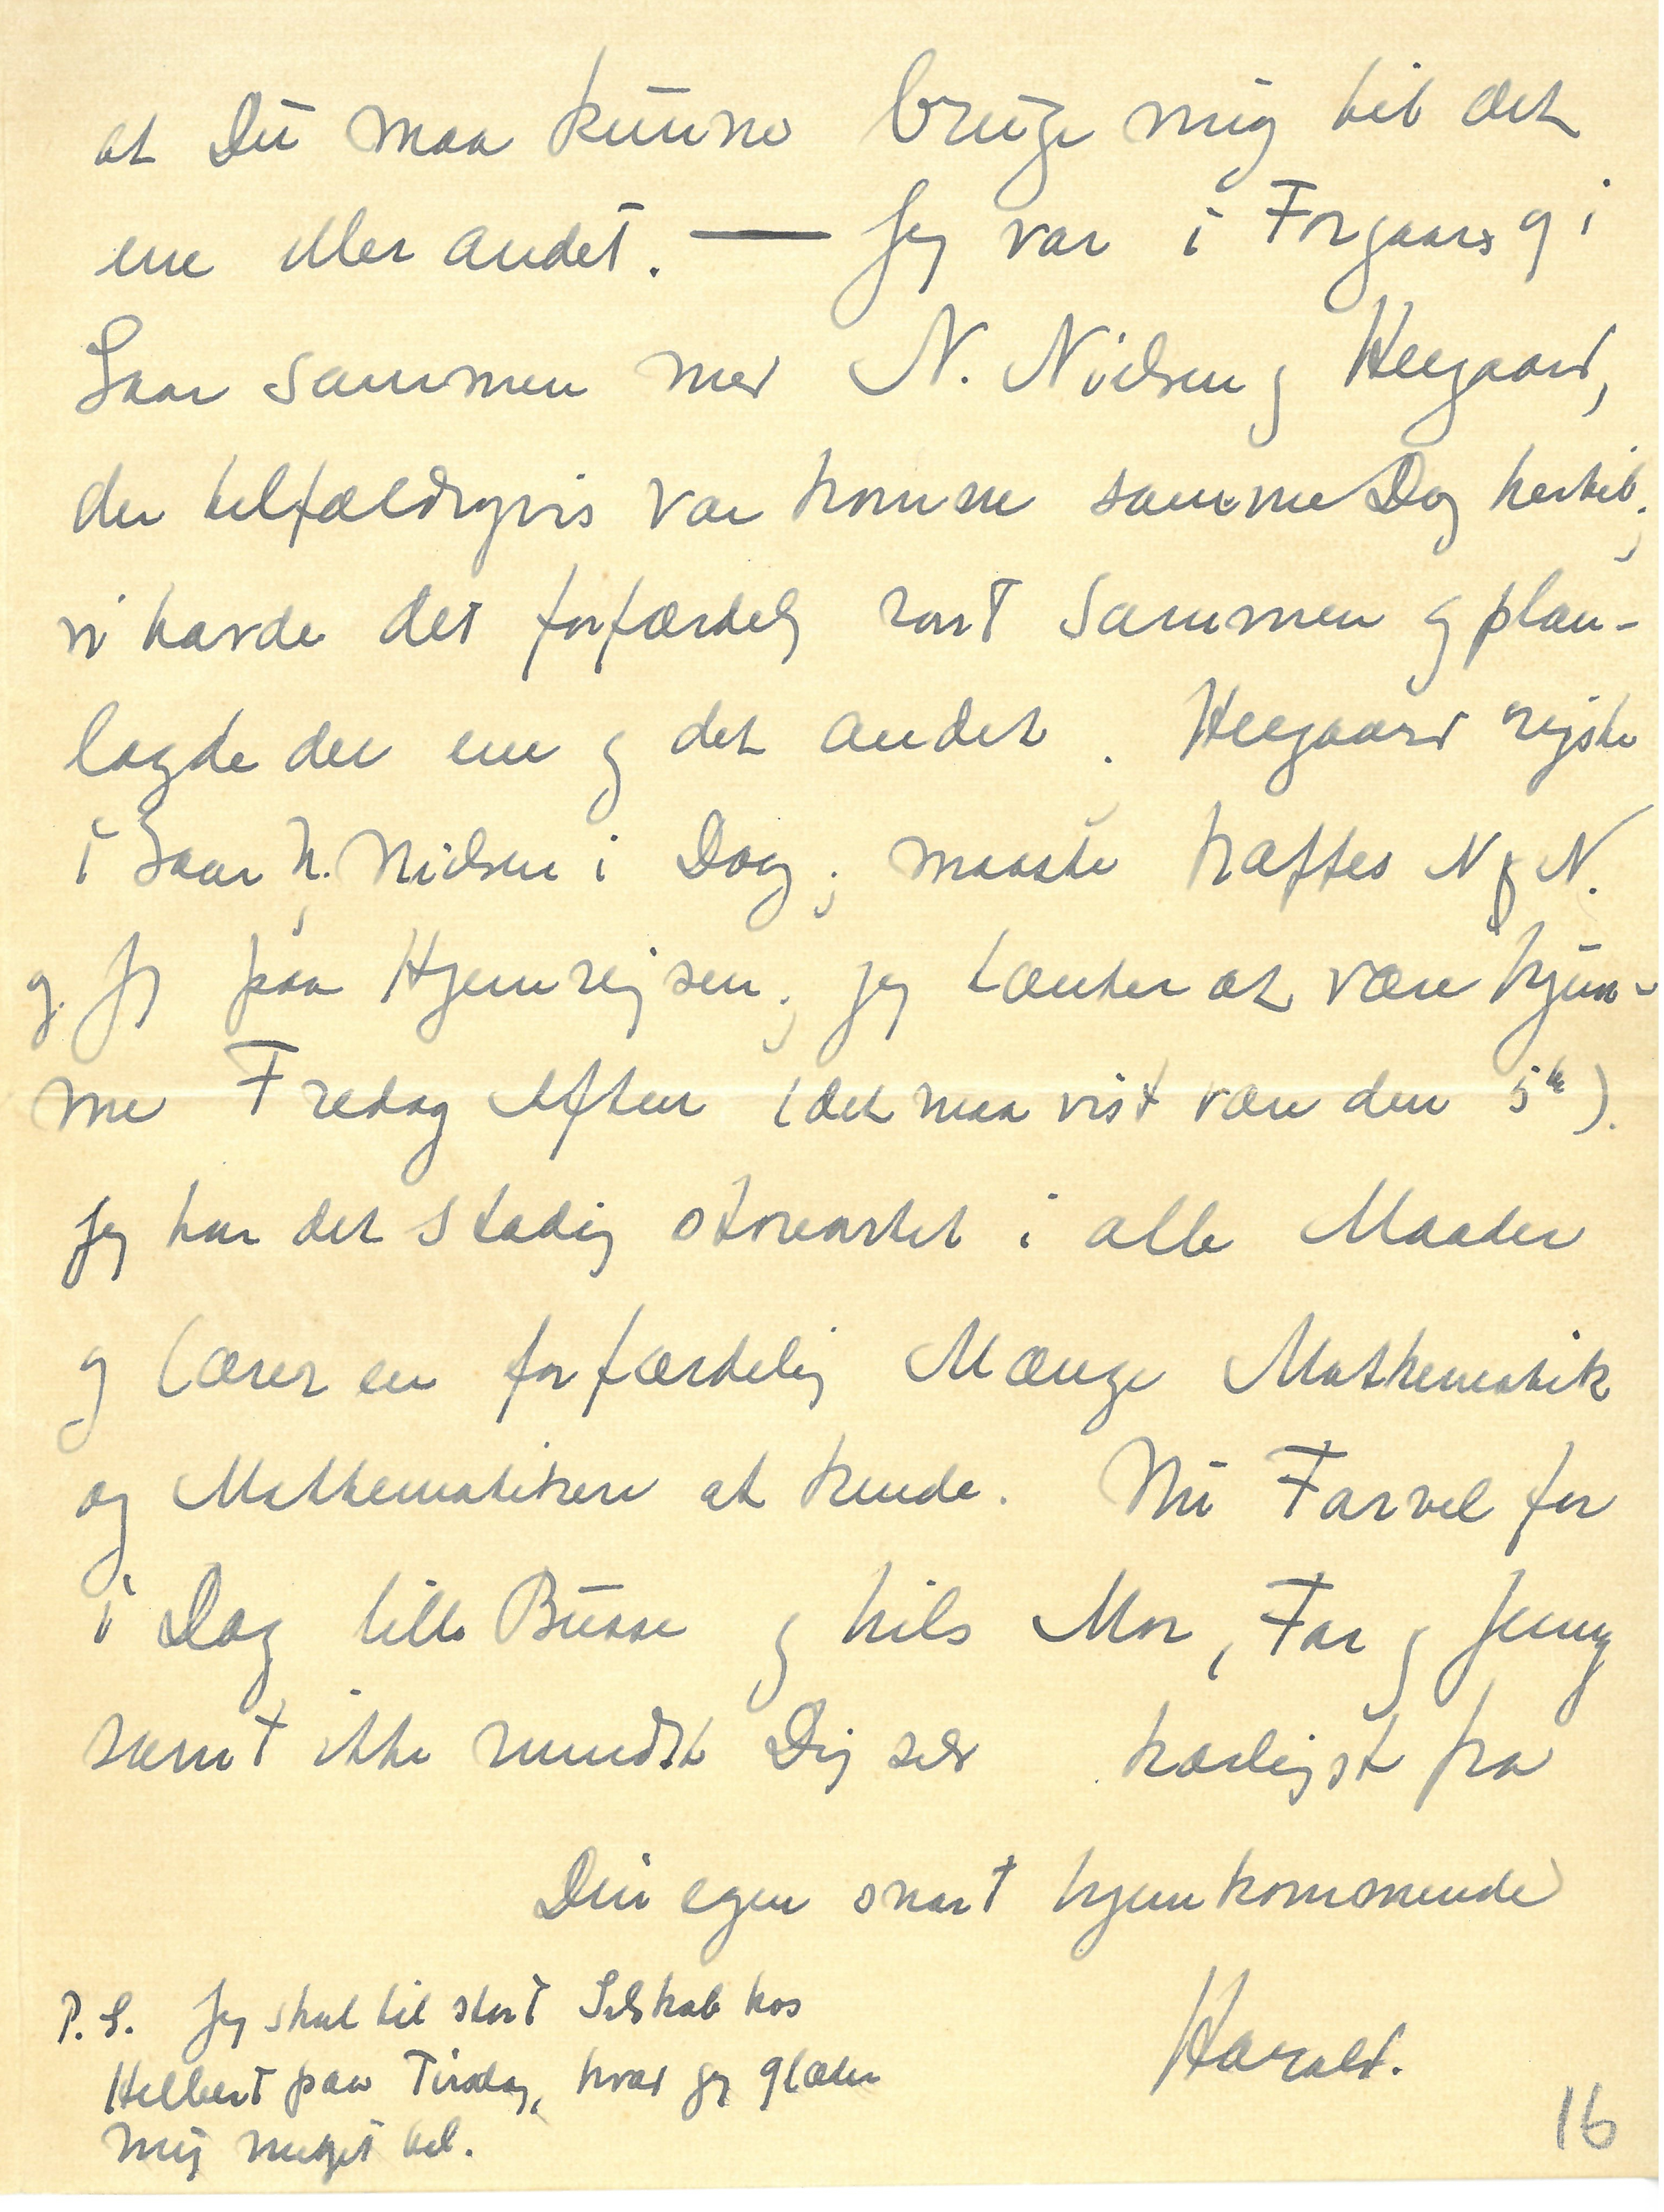 at Du maa kunne bruge mig til det
ene eller andet. — Jeg var i Forgaars og i
Gaar sammen med N. Nielsen og Heegaard,
der tilfældigvis var komne samme Dag hertil;
vi havde det forfærdelig rart sammen og plan-
lagde det ene og det andet. Heegaard rejste
i Gaar N. Nielsen i Dag; maaske træffes N N.
og jeg paa Hjemrejsen; jeg tænker at være hjem-
me Fredag Aften (det maa vist være den 5te).
Jeg har det stadig storartet i alle Maader
og lærer en forfærdelig Mænge Mathematik
og Mathematikere at kende. Nu Farvel for
i Dag lille Busse og hils Mor, Far og Jenny
samt ikke mindst Dig selv kærligst fra
Din egen snart hjemkommende
Harald.
P. S. Jeg skal til stort Selskab hos
Hilbert paa Tirsdag, hvad jeg glæder
mig meget til.
16